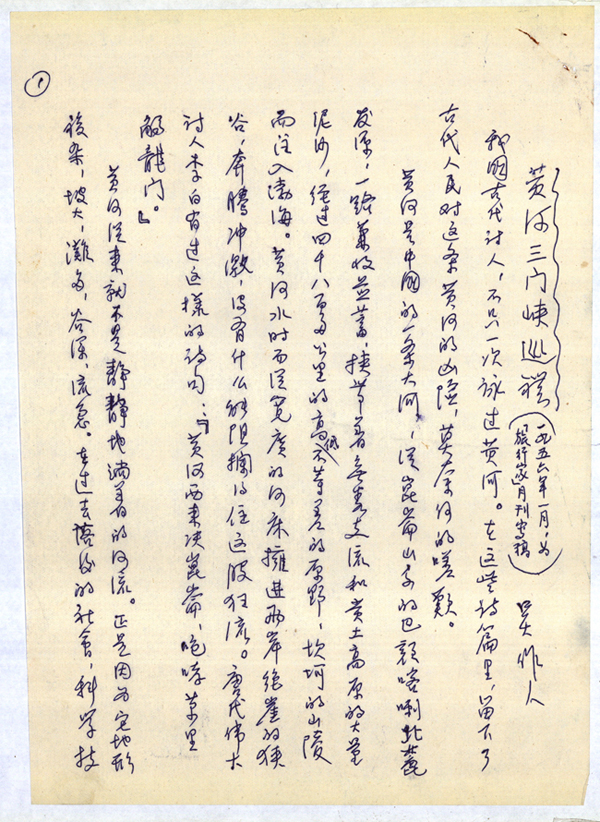 ①
黄河三门峡巡礼
(一九五六年一月,为
旅行家月刊写稿)
吴作人
我国古代诗人,不只一次咏过黄河。在这些诗篇里,留下了
古代人民对这条黄河的凶险,莫奈何的嗟歎。
黄河是中國的一条大河,从崑崙山系的巴颜喀喇北麓
发源,一路兼收并蓄,挟带着无数支流和黄土高原的大量
泥沙,经过四千八百多公里的高低不等的原野,坎坷的山陵
而注入渤海。黄河水时而从宽广的河床擁进两岸绝崖的狭
谷,奔腾冲激,没有什么能阻拦得住这股狂流。唐代伟大
诗人李白有过这樣的詩句:『黄河西来决崑崙,咆哮万里
觸龍门。』
黄河从来就不是静静地淌着的河流。正是因为它地形
複杂,坡大,灘多,谷深,流急。在过去落后的社会,科学技